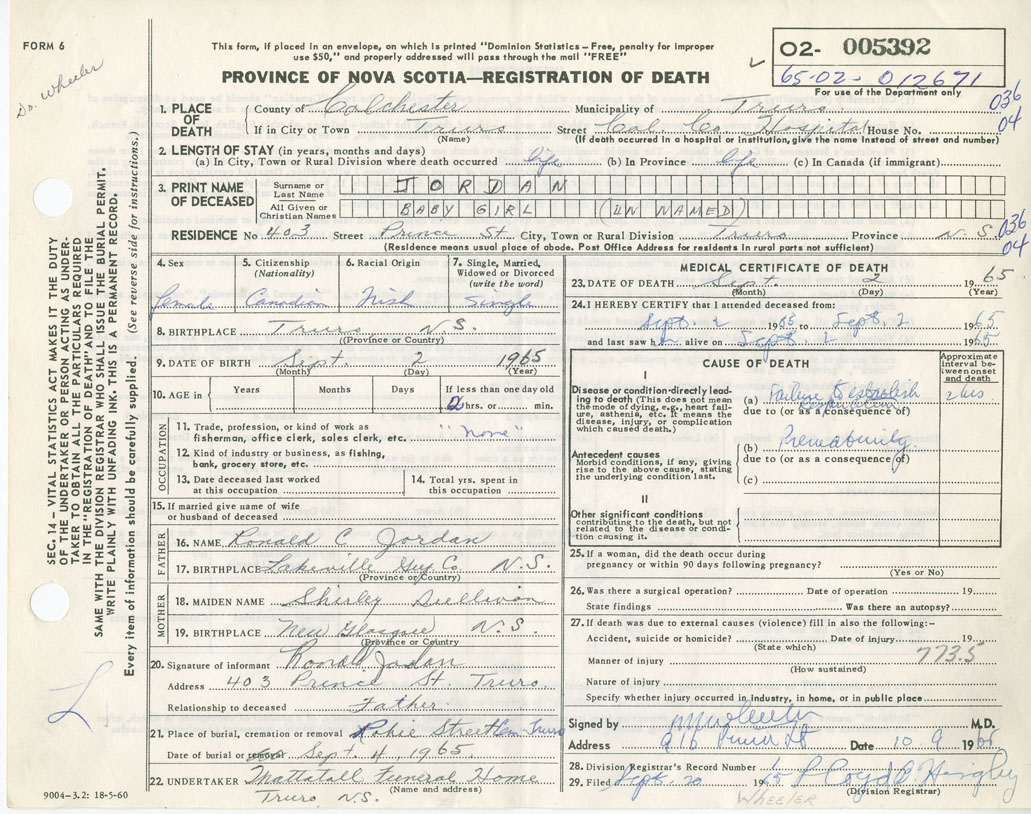 FORM 6
Dr. Wheeler
This form, if placed in an envelope, on which is printed "Dominion Statistics – Free, penalty for improper
use $50," and properly addressed will pass through the mail "FREE"
PROVINCE OF NOVA SCOTIA—REGISTRATION OF DEATH
02- 005392
65-02- 012671
For use of the Department only
036
04
1. PLACE OF DEATH County of Colchester Municipality of Truro
If in City or Town Truro Street Col. Co. Hospital House No.
(Name) (If death occurred in a hospital or institution, give the name instead of street and number)
2. LENGTH OF STAY (in years, months and days)
(a) In City, Town or Rural Division where death occurred life (b) In Province life (c) In Canada (if immigrant)
3. PRINT NAME OF DECEASED Surname or Last Name JORDAN
All Given or Christian Names BABY GIRL (UN NAMED)
RESIDENCE No 403 Street Prince St. City, Town or Rural Division Truro Province N.S.
036
04
(Residence means usual place of abode. Post Office Address for residents in rural parts not sufficient)
SEC. 14 – VITAL STATISTICS ACT MAKES IT THE DUTY
OF THE UNDERTAKER OR PERSON ACTING AS UNDER-
TAKER TO OBTAIN ALL THE PARTICULARS REQUIRED
IN THE "REGISTRATION OF DEATH" AND TO FILE THE
SAME WITH THE DIVISION REGISTRAR WHO SHALL ISSUE THE BURIAL PERMIT.
WRITE PLAINLY WITH UNFADING INK. THIS IS A PERMANENT RECORD.
Every item of information should be carefully supplied. (See reverse side for instructions.)
4. Sex female
5. Citizenship (Nationality) Canadian
6. Racial Origin Irish
7. Single, Married, Widowed or Divorced (write the word) Single
8. BIRTHPLACE Truro N.S.
(Province or Country)
9. DATE OF BIRTH Sept. 2 1965
(Month) (Day) (Year)
10. AGE in Years Months Days If less than one day old
2 hrs. or min.
OCCUPATION
11. Trade, profession, or kind of work as
fisherman, office clerk, sales clerk, etc. "none"
12. Kind of industry or business, as fishing,
bank, grocery store, etc.
13. Date deceased last worked
at this occupation
14. Total yrs. spent in
this occupation
15. If married give name of wife
or husband of deceased
FATHER
16. NAME Ronald C Jordan
17. BIRTHPLACE Lakeville Guy Co N.S.
(Province or Country)
MOTHER
18. MAIDEN NAME Shirley Sullivan
19. BIRTHPLACE New Glasgow N.S.
(Province or Country)
20. Signature of informant Ronald Jordan
Address 403 Prince St. Truro
Relationship to deceased Father
21. Place of burial, cremation or removal Robie Street Cem Truro
Date of burial or removal Sept. 4 1965
22. UNDERTAKER Mattatall Funeral Home
(Name and address)
Truro, N.S.
9004–3.2: 18-5-60
MEDICAL CERTIFICATE OF DEATH
23. DATE OF DEATH Sept. 2 1965
(Month) (Day) (Year)
24. I HEREBY CERTIFY that I attended deceased from:
Sept. 2 1965 to Sept. 2 1965
and last saw h alive on Sept. 2 1965
CAUSE OF DEATH
Approximate interval between onset and death
I
Disease or condition directly lead-
ing to death (This does not mean
the mode of dying, e.g., heart fail-
ure, asthenia, etc. It means the
disease, injury, or complication
which caused death.)
(a) Failure to establish 2 hrs
due to (or as a consequence of)
(b) Prematurity
due to (or as a consequence of)
Antecedent causes
Morbid conditions, if any, giving
rise to the above cause, stating
the underlying condition last.
(c)
II
Other significant conditions
contributing to the death, but not
related to the disease or condi-
tion causing it.
25. If a woman, did the death occur during
pregnancy or within 90 days following pregnancy?
(Yes or No)
26. Was there a surgical operation? Date of operation 19
State findings Was there an autopsy?
27. If death was due to external causes (violence) fill in also the following:–
Accident, suicide or homicide? Date of injury 19
(State which)
773.5
Manner of injury
(How sustained)
Nature of injury
Specify whether injury occurred in industry, in home, or in public place
Signed by M.D.
Address Date 10. 9 1965
28. Division Registrar's Record Number
29. Filed Sept. 20 1965 Lloyd Higby
(Division Registrar)
WHEELER